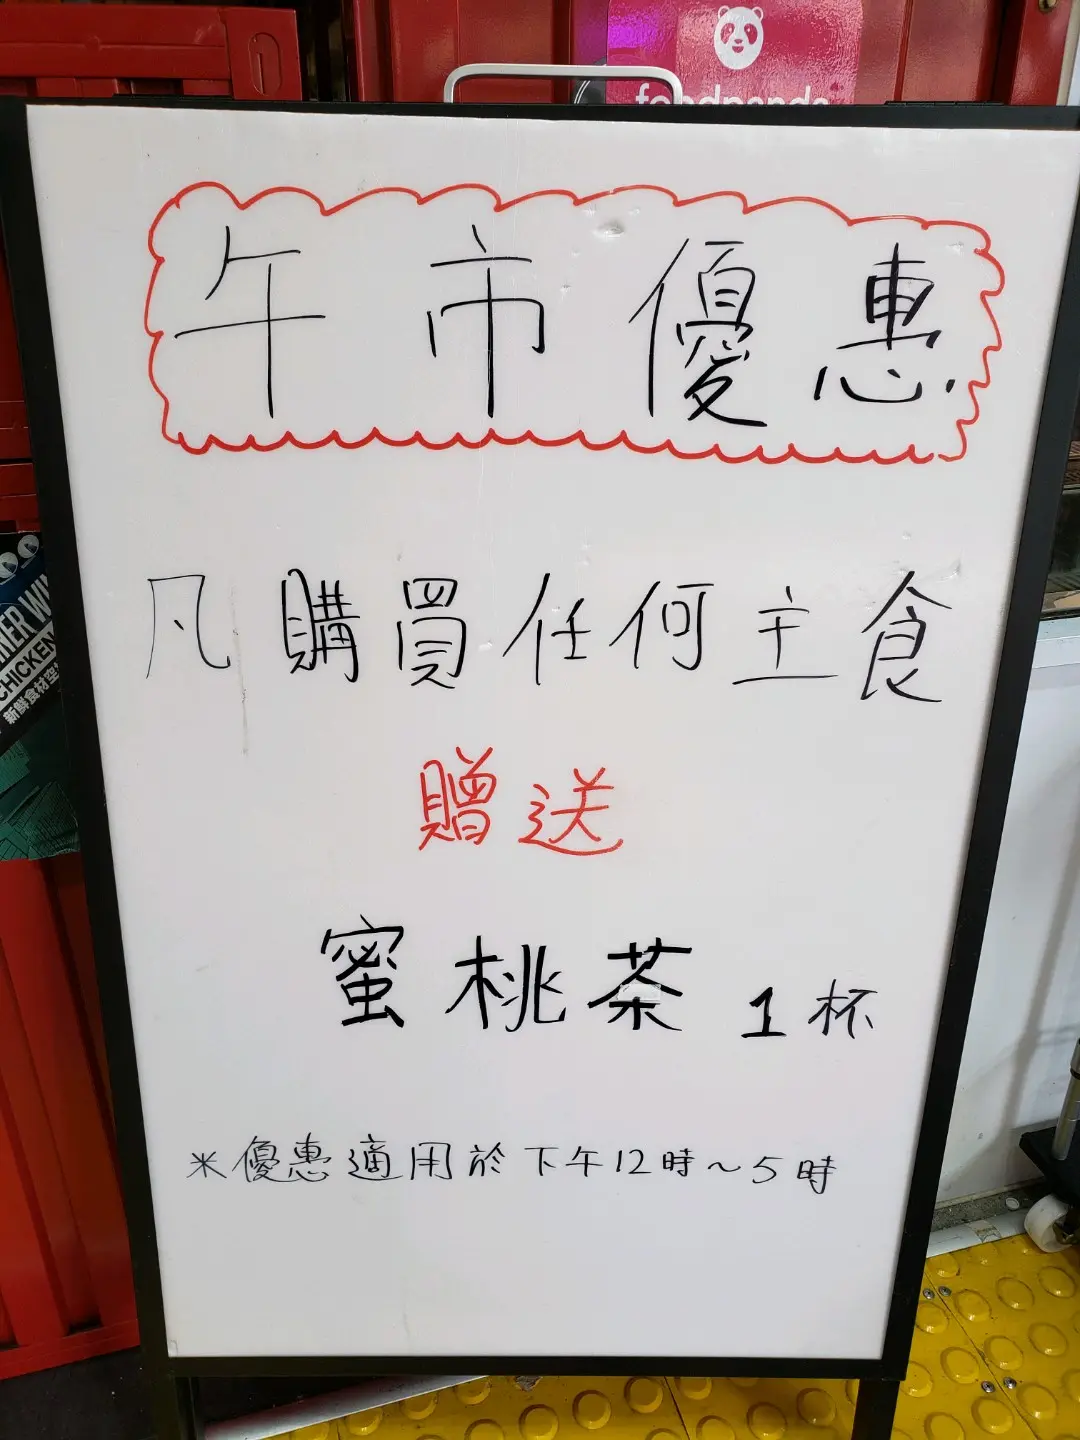 foodpanda
午市優惠
凡購買任何主食
贈送
蜜桃茶 1杯
※優惠適用於下午12時~5時
CHICKEN
新鮮食材